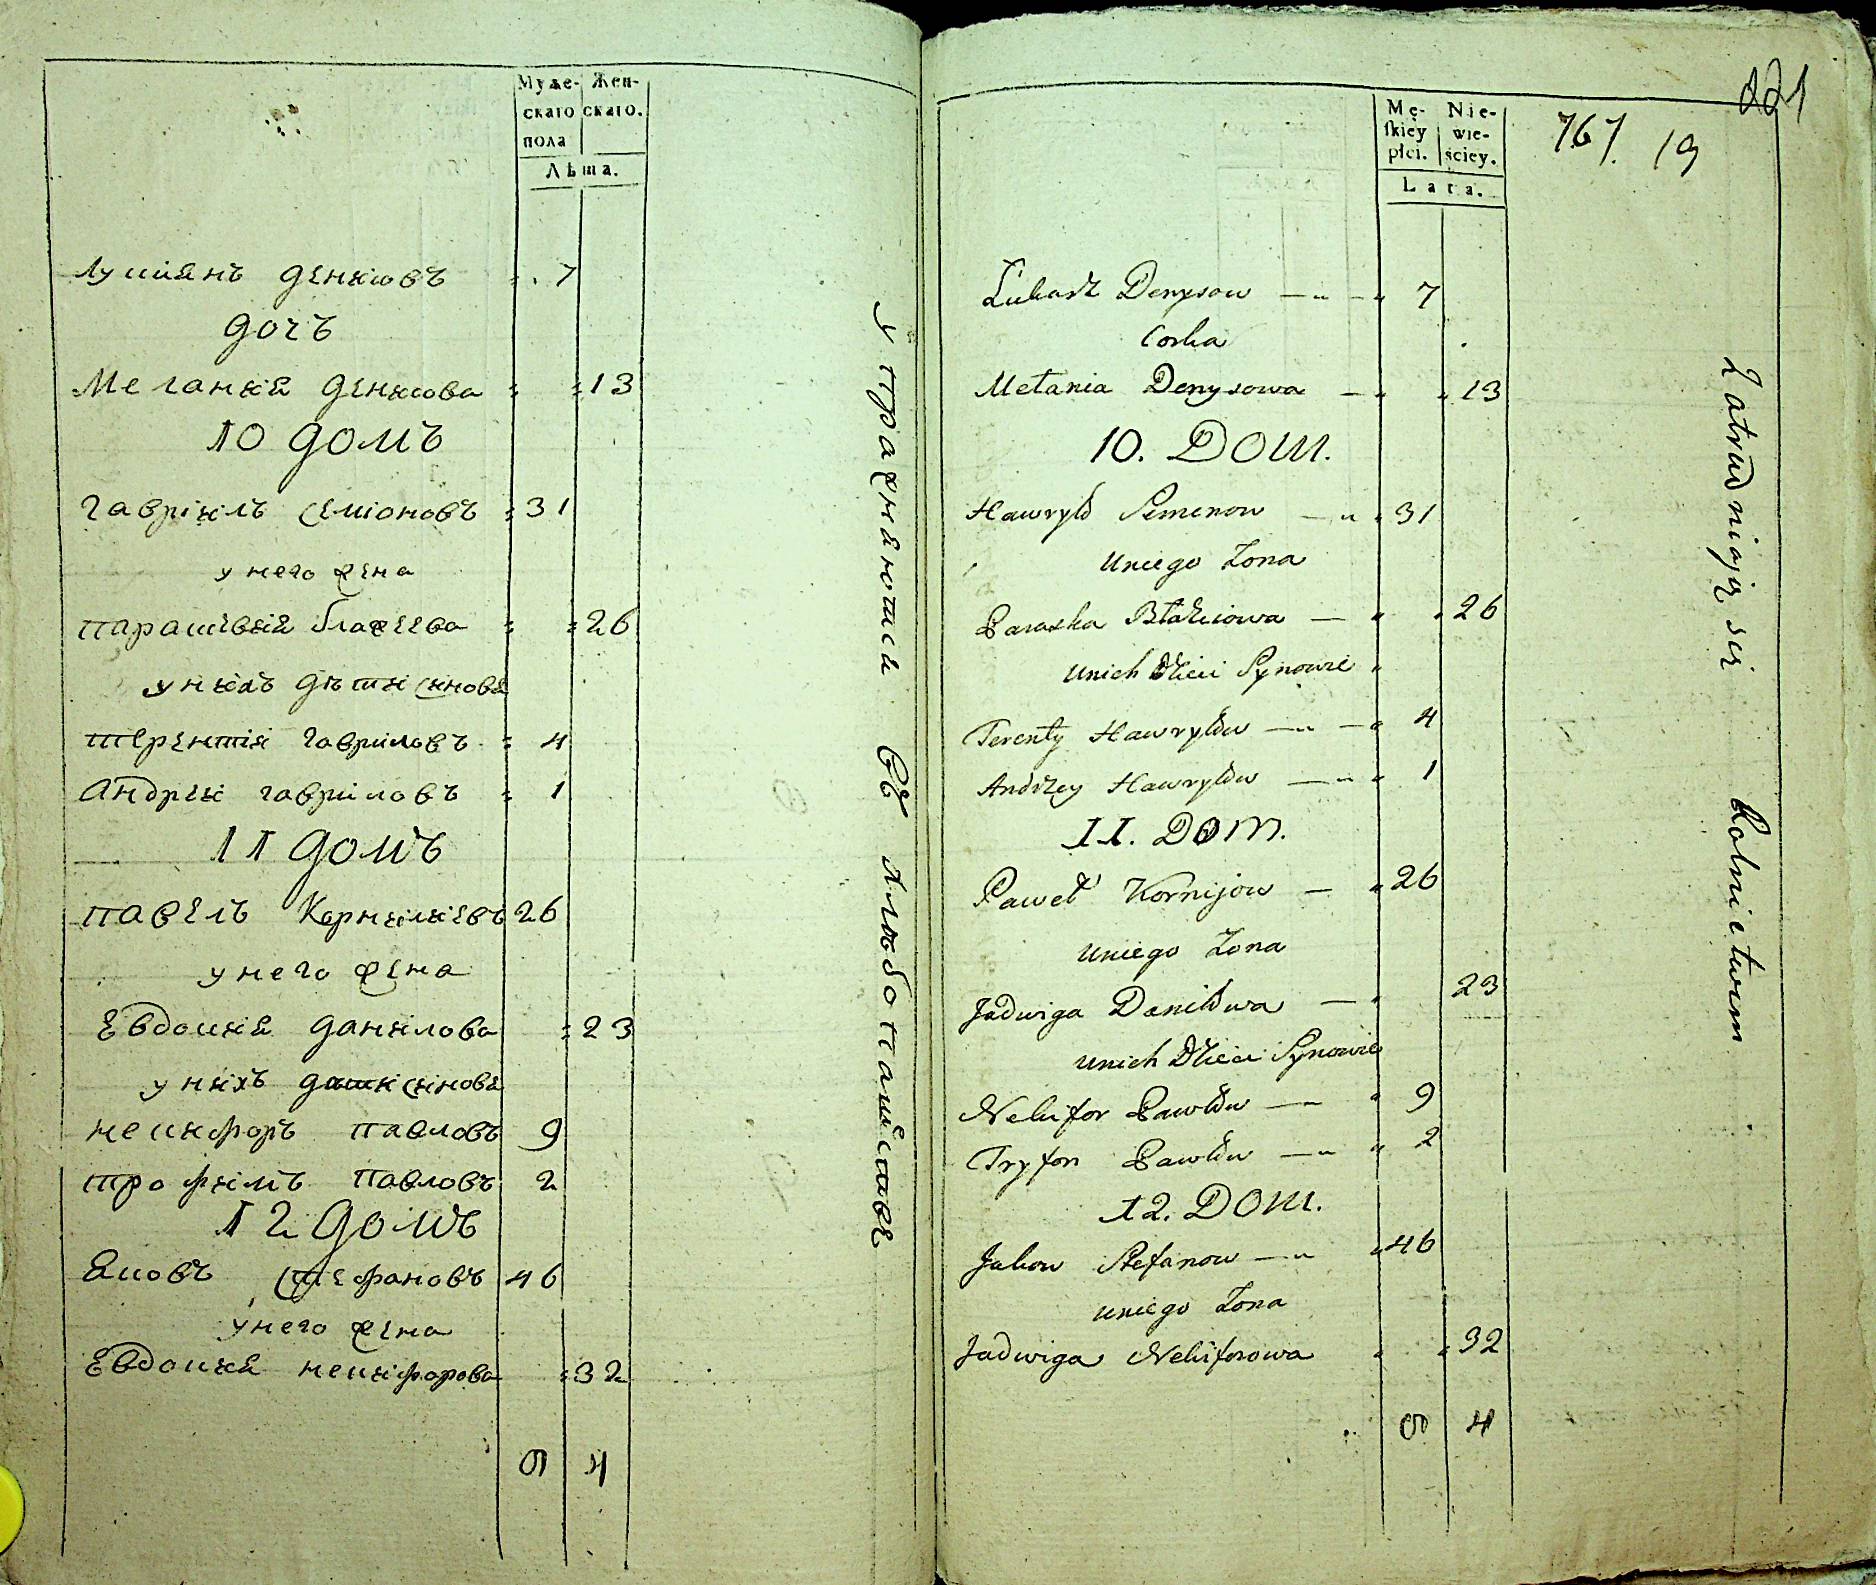 Муже- Жен-
скаго скаго.
пола
Лѣта.
Лукіянъ Денисовъ 7
дочь
Мелания Денисова 13
10 домъ
Гавріилъ Семіоновъ 31
у него жена
Парасковия Блажеева 26
у нихъ дѣти сыновья
Терентій Гавриловъ 4
Андрей Гавриловъ 1
11 домъ
Павелъ Корнилиевъ 26
у него жена
Евдокия Данилова 23
у нихъ дѣти сыновья
Некифоръ Павловъ 9
Трофимъ Павловъ 2
12 домъ
Яковъ Стефановъ 46
у него жена
Евдокия Некифорова 32
9 4
Упражняютися въ хлѣбопашестве
221
767. 19
Mę- Nie-
skiey wie-
płci. ściey.
Lata.
Łukasz Denysow 7
Corka
Mełania Denysowa 13
10. DOM.
Hawryło Semenow 31
Uniego Zona
Paraska Błażiowa 26
Unich Dzieci Synowie
Terenty Hawryłow 4
Andrzey Hawryłow 1
11. DOM.
Paweł Kornijow 26
Uniego Zona
Jadwiga Daniłowa 23
Unich Dzieci Synowie
Nekifor Pawłow 9
Tryfon Pawłow 2
12. DOM.
Jakow Stefanow 46
Uniego Zona
Jadwiga Nekiforowa 32
9 4
Zatrudniaią się Rolnictwem